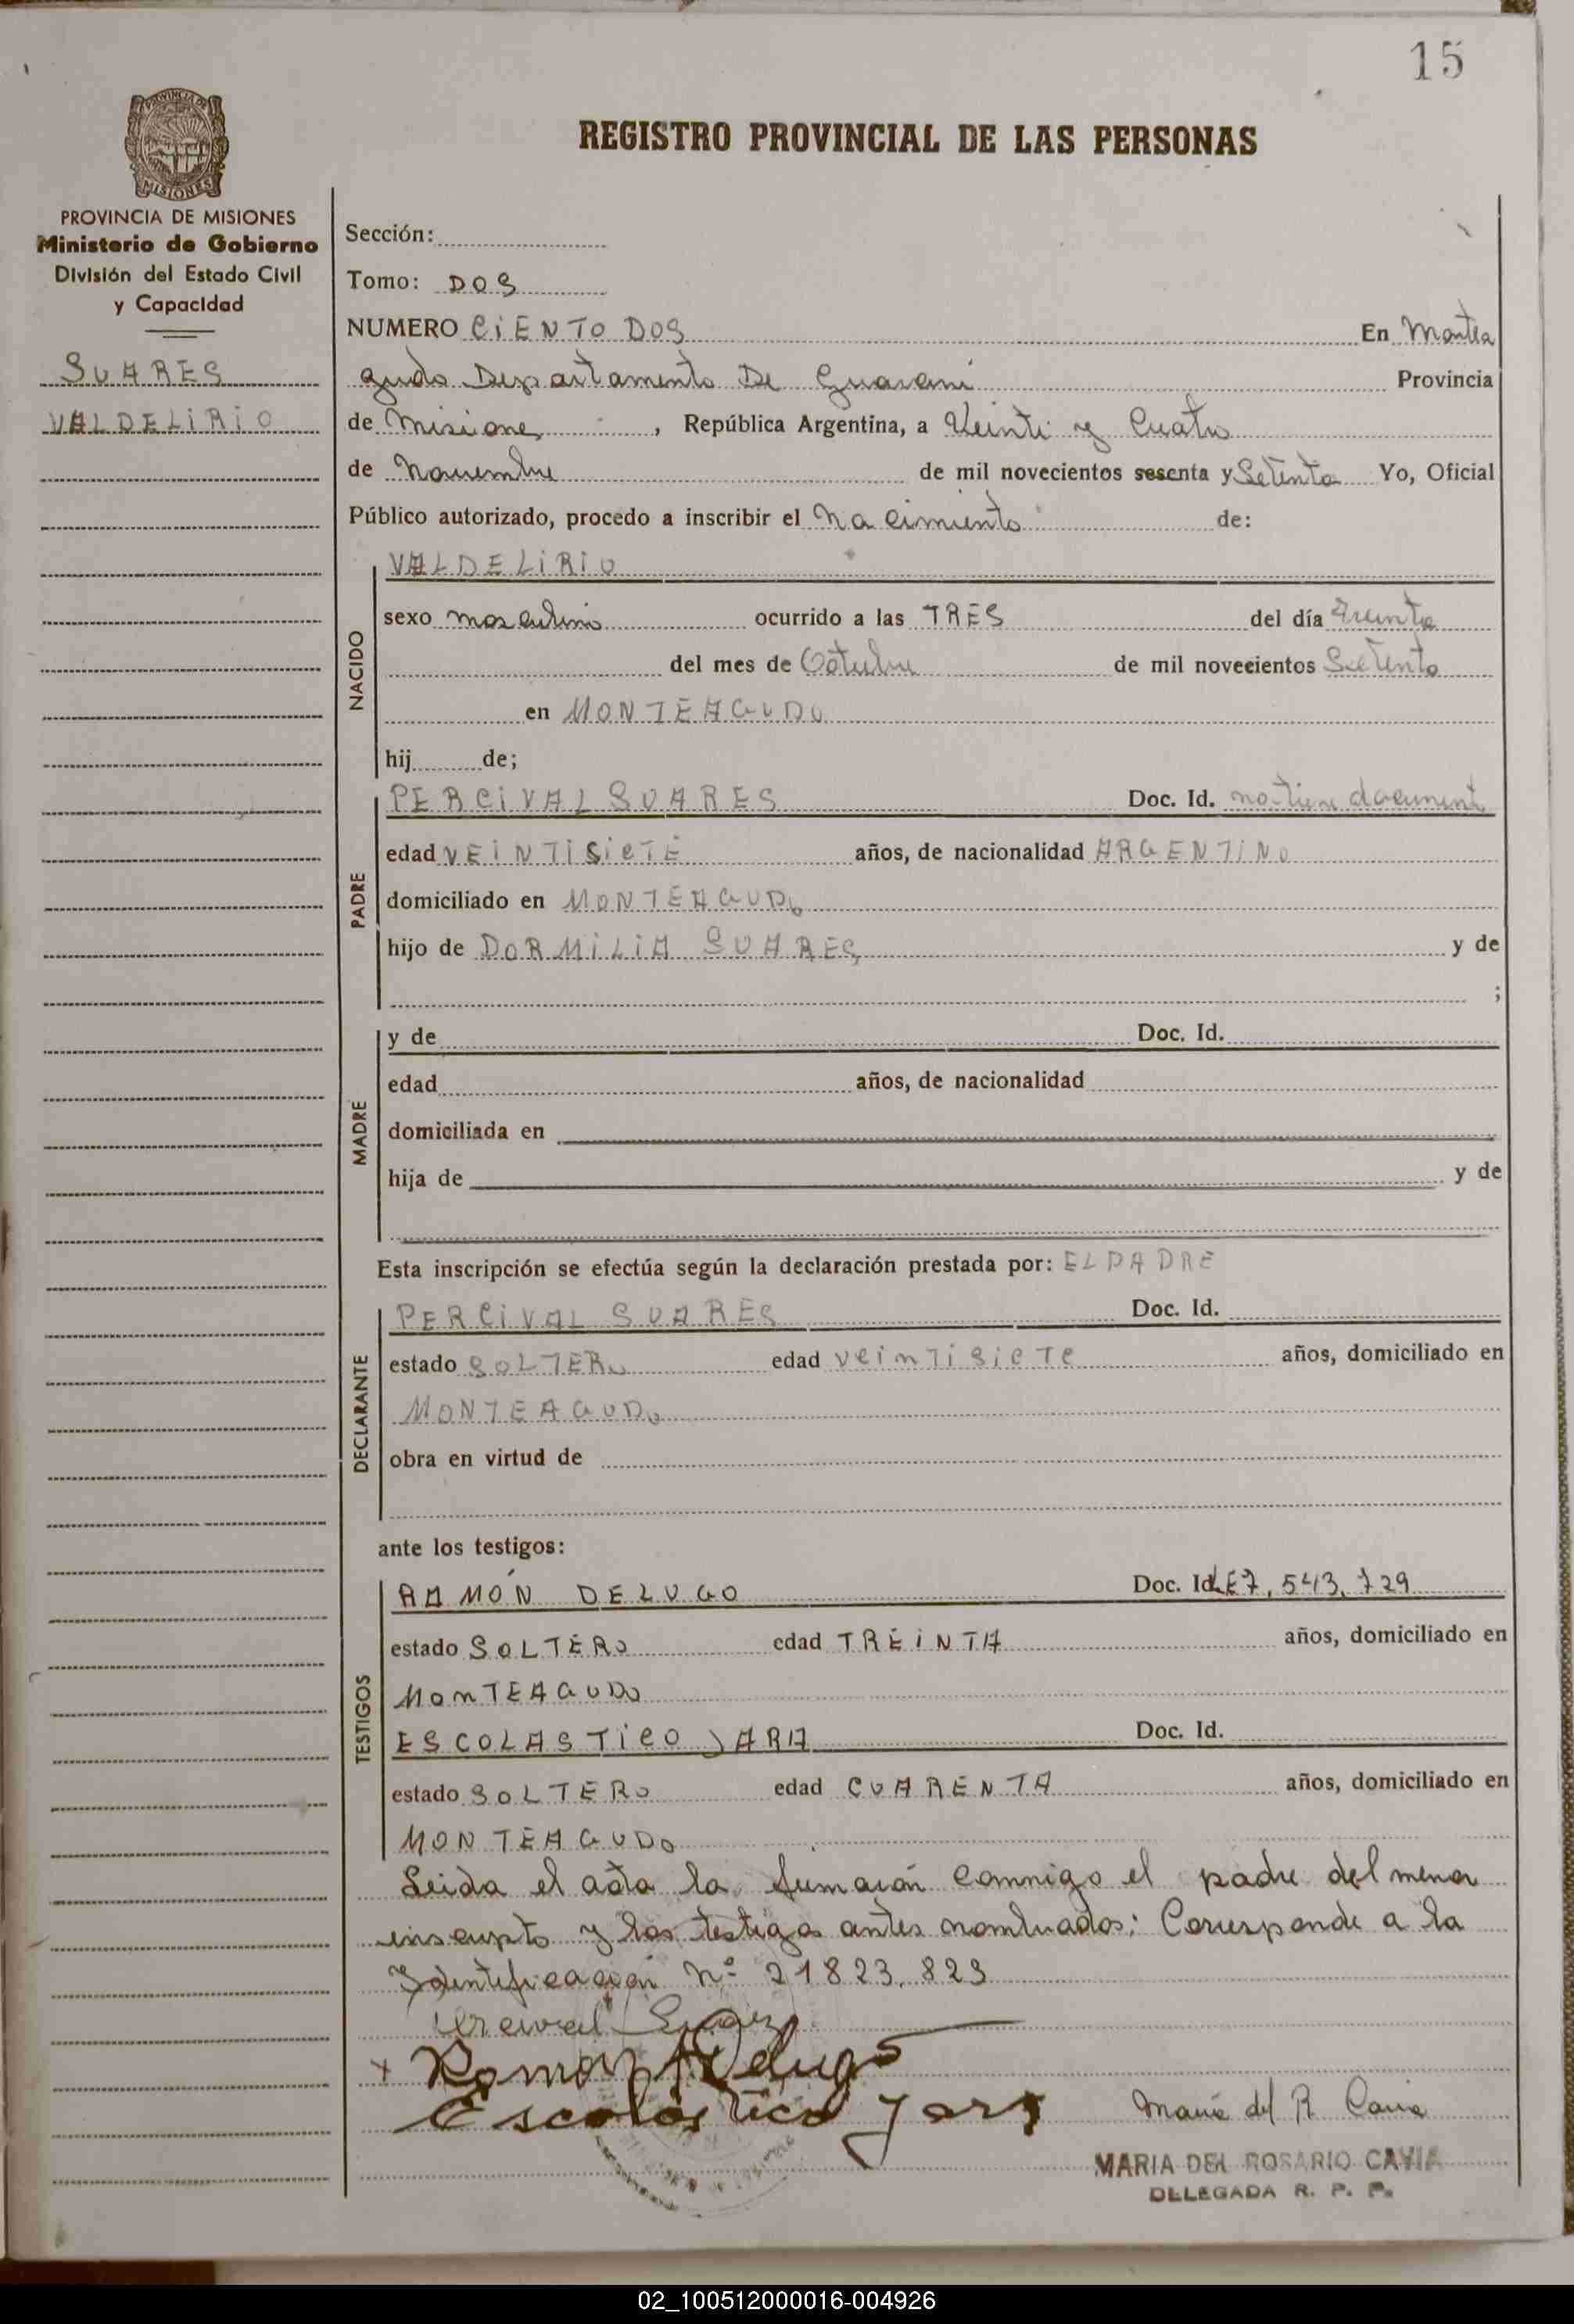 15
REGISTRO PROVINCIAL DE LAS PERSONAS
PROVINCIA DE MISIONES
PROVINCIA DE MISIONES
Ministerio de Gobierno
División del Estado Civil
y Capacidad
SUARES
VALDELIRIO
Sección:
Tomo: DOS
NUMERO CIENTO DOS En Montea
gudo Departamento De Guarani Provincia
de Misiones, República Argentina, a Veinti y Cuatro
de Noviembre de mil novecientos sesenta y Setenta Yo, Oficial
Público autorizado, procedo a inscribir el Nacimiento de:
NACIDO
VALDELIRIO
sexo masculino ocurrido a las TRES del día Treinta
del mes de Octubre de mil novecientos Setenta
en MONTEAGUDO
hij de;
PADRE
PERCIVAL SUARES Doc. Id. no tiene document
edad VEINTISIETE años, de nacionalidad ARGENTINO
domiciliado en MONTEAGUDO
hijo de DORMILIA SUARES y de
;
MADRE
y de Doc. Id.
edad años, de nacionalidad
domiciliada en
hija de y de
Esta inscripción se efectúa según la declaración prestada por: EL PADRE
DECLARANTE
PERCIVAL SUARES Doc. Id.
estado SOLTERO edad veintisiete años, domiciliado en
MONTEAGUDO
obra en virtud de
ante los testigos:
TESTIGOS
RAMÓN DELUGO Doc. Id. LE 7,543,729
estado SOLTERO edad TREINTA años, domiciliado en
MONTEAGUDO
ESCOLASTICO JARA Doc. Id.
estado SOLTERO edad CUARENTA años, domiciliado en
MONTEAGUDO
Leida el acta la firmaran conmigo el padre del menor
inscripto y los testigos antes nombrados: Corresponde a la
Identificacion Nº 21823.823
Ramon Delugo
Escolastico Jara
Maria del R Cavia
MARIA DEL ROSARIO CAVIA
DELEGADA R. P. P.
02_100512000016-004926